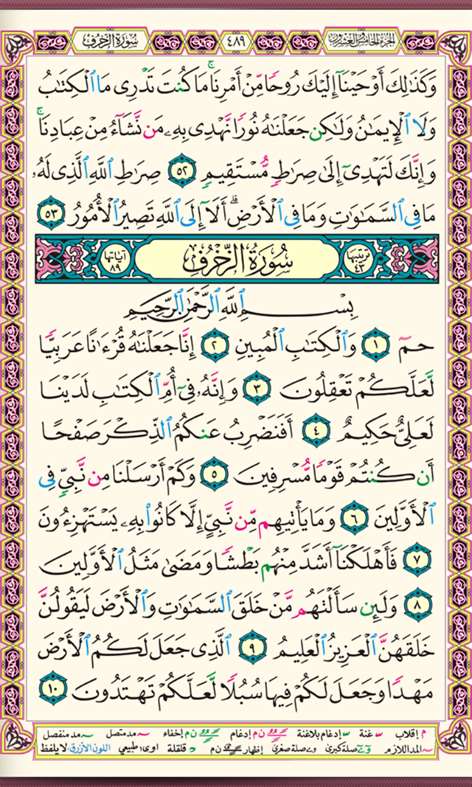 سورة الزخرف ٤٨٩ الجزء الخامس والعشرون
وَكَذَٰلِكَ أَوْحَيْنَآ إِلَيْكَ رُوحًا مِّنْ أَمْرِنَا ۚ مَا كُنتَ تَدْرِى مَا ٱلْكِتَٰبُ
وَلَا ٱلْإِيمَٰنُ وَلَٰكِن جَعَلْنَٰهُ نُورًا نَّهْدِى بِهِۦ مَن نَّشَآءُ مِنْ عِبَادِنَا ۚ
وَإِنَّكَ لَتَهْدِىٓ إِلَىٰ صِرَٰطٍ مُّسْتَقِيمٍ ٥٢ صِرَٰطِ ٱللَّهِ ٱلَّذِى لَهُۥ
مَا فِى ٱلسَّمَٰوَٰتِ وَمَا فِى ٱلْأَرْضِ ۗ أَلَآ إِلَى ٱللَّهِ تَصِيرُ ٱلْأُمُورُ ٥٣
ترتيبها ٤٣ سُورَةُ الزُّخْرُفِ آياتها ٨٩
بِسْمِ ٱللَّهِ ٱلرَّحْمَٰنِ ٱلرَّحِيمِ
حمٓ ١ وَٱلْكِتَٰبِ ٱلْمُبِينِ ٢ إِنَّا جَعَلْنَٰهُ قُرْءَٰنًا عَرَبِيًّا
لَّعَلَّكُمْ تَعْقِلُونَ ٣ وَإِنَّهُۥ فِىٓ أُمِّ ٱلْكِتَٰبِ لَدَيْنَا
لَعَلِىٌّ حَكِيمٌ ٤ أَفَنَضْرِبُ عَنكُمُ ٱلذِّكْرَ صَفْحًا
أَن كُنتُمْ قَوْمًا مُّسْرِفِينَ ٥ وَكَمْ أَرْسَلْنَا مِن نَّبِىٍّ فِى
ٱلْأَوَّلِينَ ٦ وَمَا يَأْتِيهِم مِّن نَّبِىٍّ إِلَّا كَانُوا۟ بِهِۦ يَسْتَهْزِءُونَ
٧ فَأَهْلَكْنَآ أَشَدَّ مِنْهُم بَطْشًا وَمَضَىٰ مَثَلُ ٱلْأَوَّلِينَ
٨ وَلَئِن سَأَلْتَهُم مَّنْ خَلَقَ ٱلسَّمَٰوَٰتِ وَٱلْأَرْضَ لَيَقُولُنَّ
خَلَقَهُنَّ ٱلْعَزِيزُ ٱلْعَلِيمُ ٩ ٱلَّذِى جَعَلَ لَكُمُ ٱلْأَرْضَ
مَهْدًا وَجَعَلَ لَكُمْ فِيهَا سُبُلًا لَّعَلَّكُمْ تَهْتَدُونَ ١٠
م إقلاب غنة إدغام بلاغنة ن م إدغام ن م إخفاء مد متصل مد منفصل
المد اللازم صلة كبرى صلة صغرى إظهار ن م قلقلة اوى: طبيعي اللون الأزرق: لا يلفظ